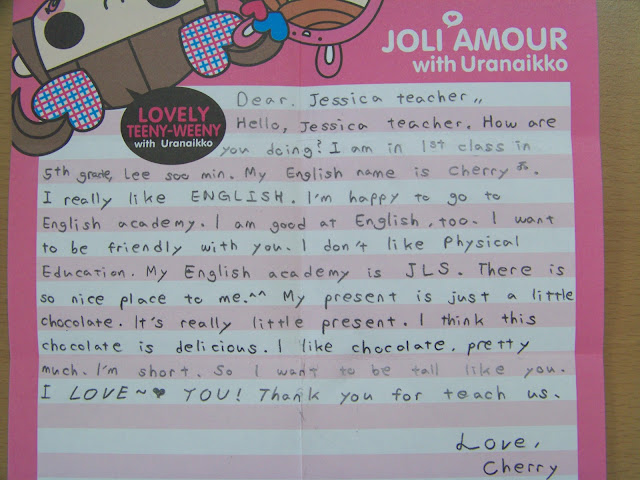 JOLI AMOUR
with Uranaikko
LOVELY
TEENY-WEENY
with Uranaikko
Dear. Jessica teacher,,
Hello, Jessica teacher. How are
you doing? I am in 1st class in
5th grade, Lee soo min. My English name is Cherry.
I really like ENGLISH. I'm happy to go to
English academy. I am good at English, too. I want
to be friendly with you. I don't like Physical
Education. My English academy is JLS. There is
so nice place to me.^^ My present is just a little
chocolate. It's really little present. I think this
chocolate is delicious. I like chocolate, pretty
much. I'm short. So I want to be tall like you.
I LOVE~♥ YOU! Thank you for teach us.
Love,
Cherry